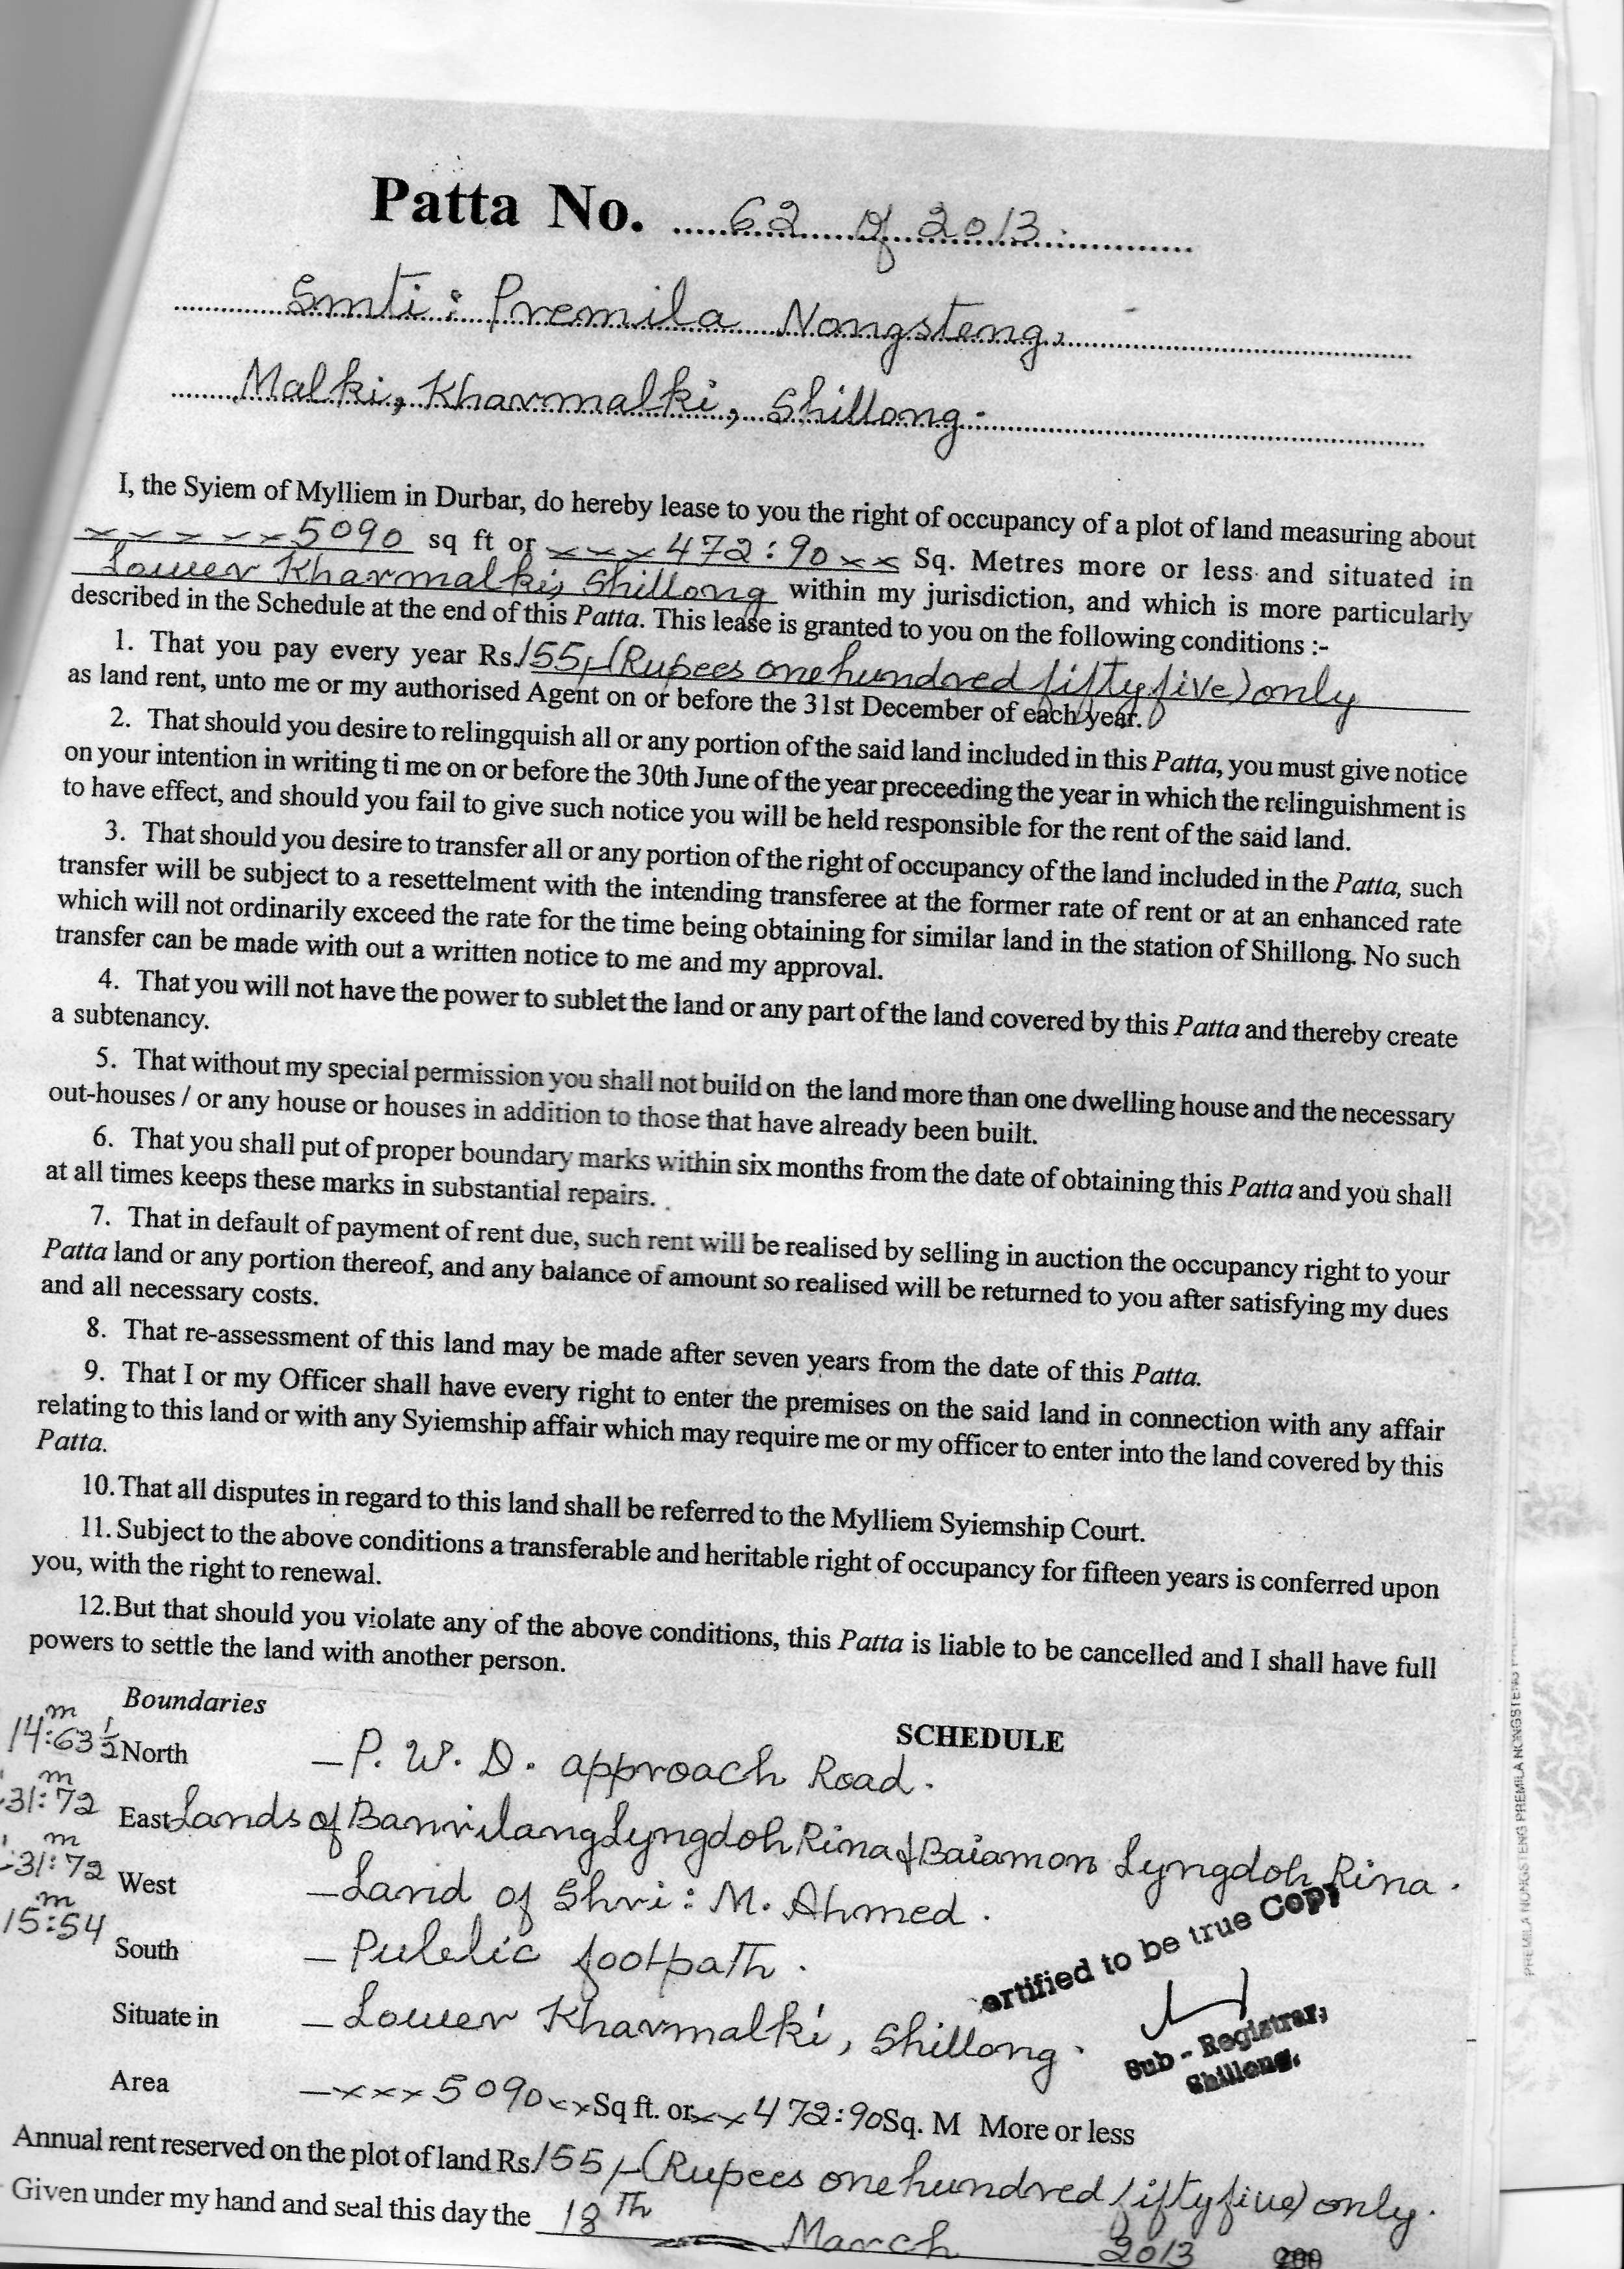 Patta No. 62 of 2013.
Smti: Premila Nongsteng,
Malki, Kharmalki, Shillong.
I, the Syiem of Mylliem in Durbar, do hereby lease to you the right of occupancy of a plot of land measuring about
x x x x x 5090 sq ft or x x x 472:90 x x Sq. Metres more or less and situated in
Lower Kharmalki, Shillong within my jurisdiction, and which is more particularly
described in the Schedule at the end of this Patta. This lease is granted to you on the following conditions :-
1. That you pay every year Rs. 155/- (Rupees one hundred fifty five) only
as land rent, unto me or my authorised Agent on or before the 31st December of each year.
2. That should you desire to relingquish all or any portion of the said land included in this Patta, you must give notice
on your intention in writing ti me on or before the 30th June of the year preceeding the year in which the relinguishment is
to have effect, and should you fail to give such notice you will be held responsible for the rent of the said land.
3. That should you desire to transfer all or any portion of the right of occupancy of the land included in the Patta, such
transfer will be subject to a resettelment with the intending transferee at the former rate of rent or at an enhanced rate
which will not ordinarily exceed the rate for the time being obtaining for similar land in the station of Shillong. No such
transfer can be made with out a written notice to me and my approval.
4. That you will not have the power to sublet the land or any part of the land covered by this Patta and thereby create
a subtenancy.
5. That without my special permission you shall not build on the land more than one dwelling house and the necessary
out-houses / or any house or houses in addition to those that have already been built.
6. That you shall put of proper boundary marks within six months from the date of obtaining this Patta and you shall
at all times keeps these marks in substantial repairs.
7. That in default of payment of rent due, such rent will be realised by selling in auction the occupancy right to your
Patta land or any portion thereof, and any balance of amount so realised will be returned to you after satisfying my dues
and all necessary costs.
8. That re-assessment of this land may be made after seven years from the date of this Patta.
9. That I or my Officer shall have every right to enter the premises on the said land in connection with any affair
relating to this land or with any Syiemship affair which may require me or my officer to enter into the land covered by this
Patta.
10. That all disputes in regard to this land shall be referred to the Mylliem Syiemship Court.
11. Subject to the above conditions a transferable and heritable right of occupancy for fifteen years is conferred upon
you, with the right to renewal.
12. But that should you violate any of the above conditions, this Patta is liable to be cancelled and I shall have full
powers to settle the land with another person.
Boundaries
SCHEDULE
14:63½ m North – P. W. D. approach Road.
31:72 m East Lands of Banrilang Lyngdoh Rina & Baiamon Lyngdoh Rina.
31:72 m West – Land of Shri: M. Ahmed.
15:54 m South – Public footpath.
Situate in – Lower Kharmalki, Shillong.
ertified to be true Copy
Sub - Registrar,
Shillong.
Area – x x x 5090 x x Sq ft. or x x 472:90 Sq. M More or less
Annual rent reserved on the plot of land Rs. 155/- (Rupees one hundred fifty five) only.
Given under my hand and seal this day the 18th March 2013 200
PREMILA NONGSTENG PREMILA NONGSTENG